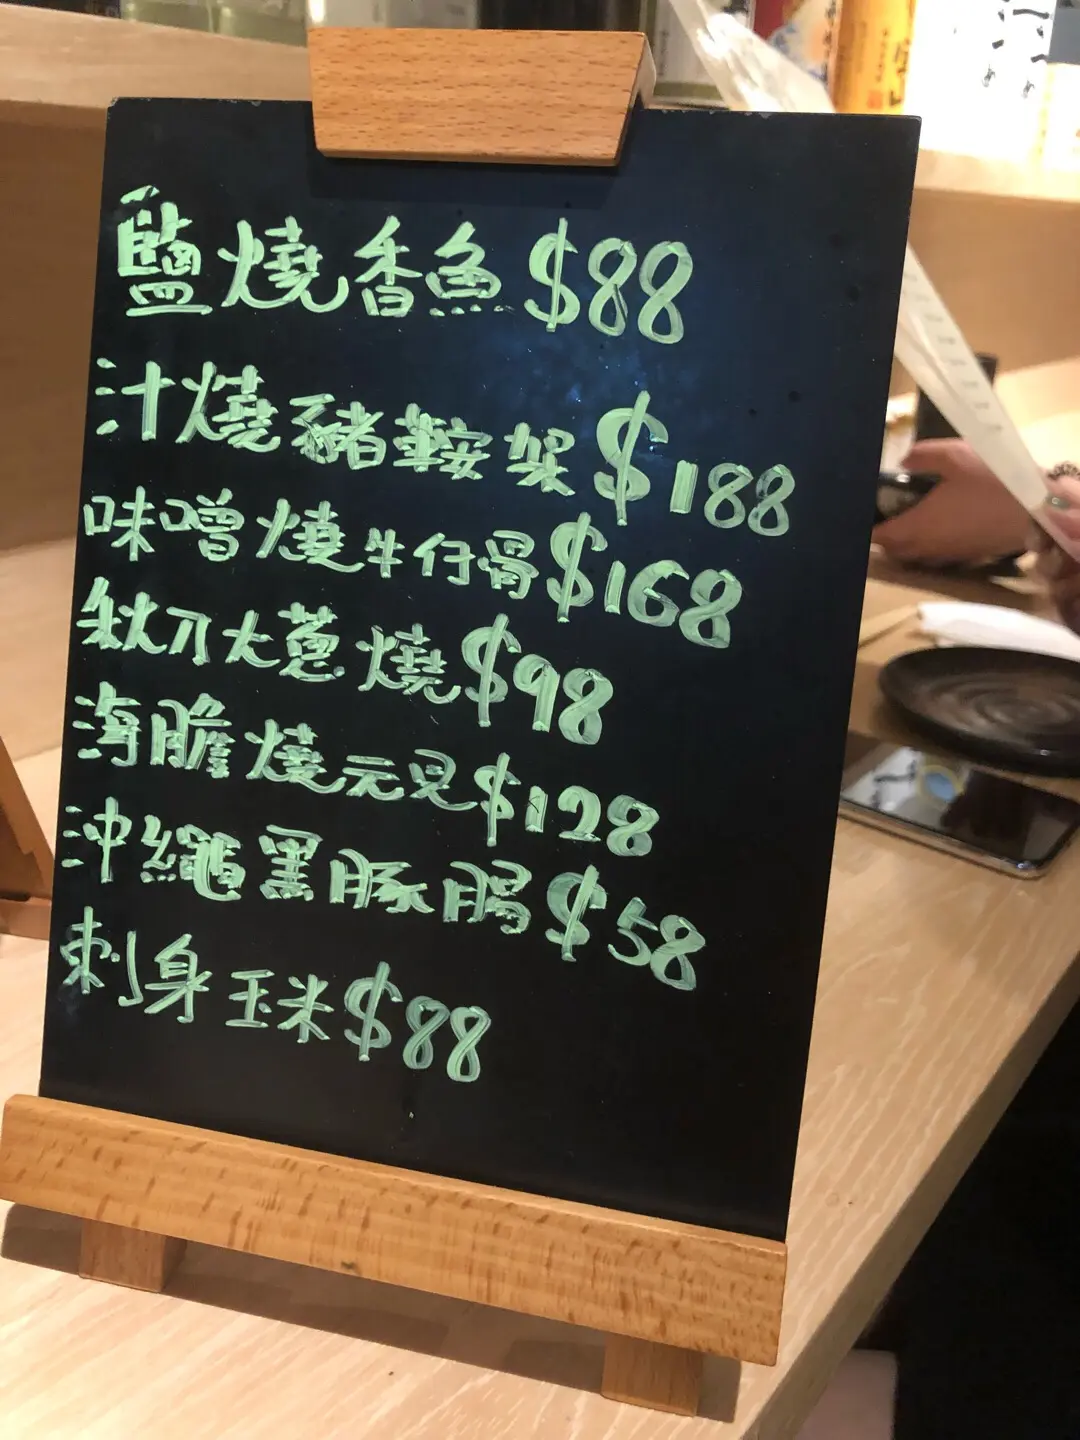 鹽燒香魚 $88
汁燒豬鞍架 $188
味噌燒牛仔骨 $168
秋刀大蔥燒 $98
海膽燒元貝 $128
沖繩黑豚腸 $58
刺身玉米 $88